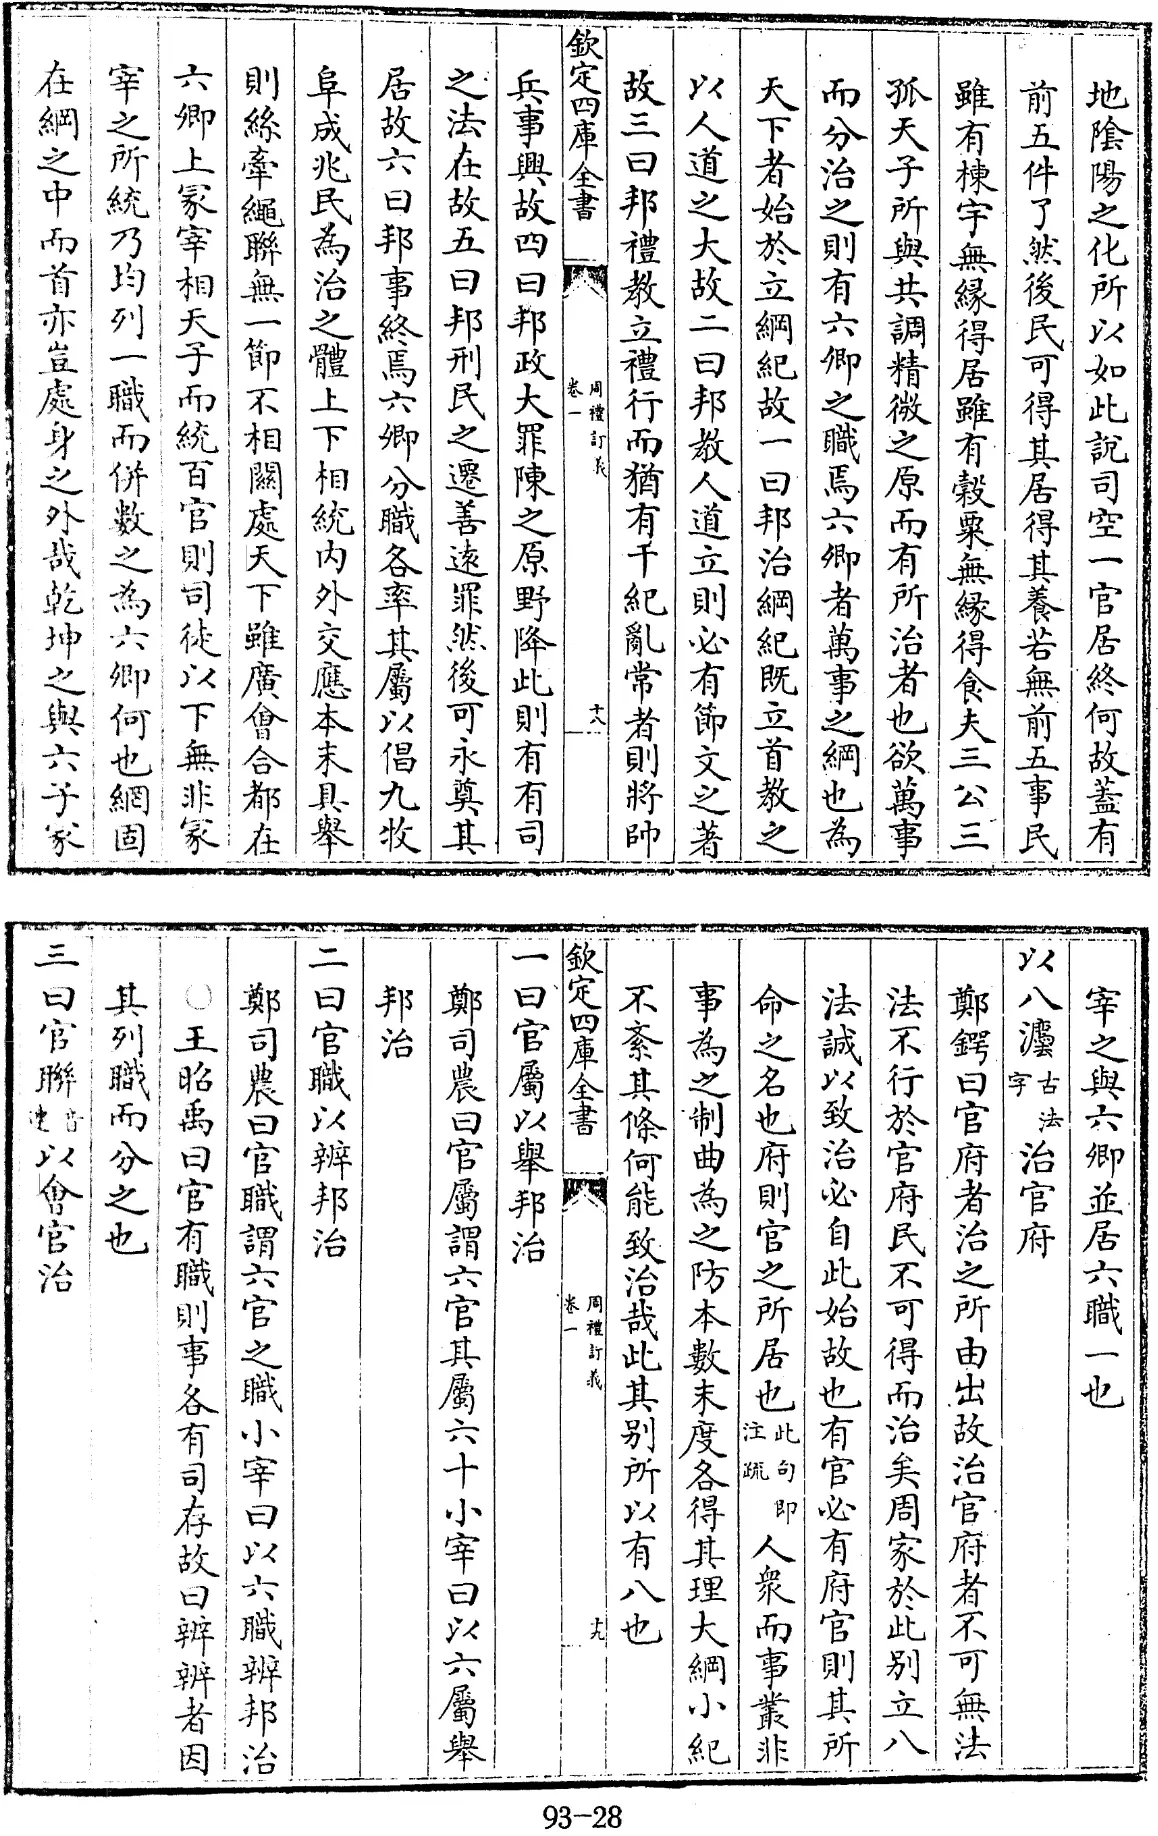 地陰陽之化所以如此說司空一官居終何故蓋有
前五件了然後民可得其居得其養若無前五事民
雖有棟宇無縁得居雖有穀粟無縁得食夫三公三
孤天子所與共調精微之原而有所治者也欲萬事
而分治之則有六卿之職焉六卿者萬事之綱也為
天下者始於立綱紀故一曰邦治綱紀既立首教之
以人道之大故二曰邦教人道立則必有節文之著
故三曰邦禮教立禮行而猶有干紀亂常者則將帥
欽定四庫全書
周禮訂義
卷一
十八
兵事興故四曰邦政大罪陳之原野降此則有有司
之法在故五曰邦刑民之遷善逺罪然後可永奠其
居故六曰邦事終焉六卿分職各率其屬以倡九牧
阜成兆民為治之體上下相統内外交應本末具舉
則絲牽繩聯無一節不相關處天下雖廣會合都在
六卿上冡宰相天子而統百官則司徒以下無非冡
宰之所統乃均列一職而併數之為六卿何也綱固
在綱之中而首亦豈處身之外哉乾坤之與六子冡
宰之與六卿並居六職一也
以八灋古法字治官府
鄭鍔曰官府者治之所由出故治官府者不可無法
法不行於官府民不可得而治矣周家於此别立八
法誠以致治必自此始故也有官必有府官則其所
命之名也府則官之所居也此句即注疏人衆而事叢非
事為之制曲為之防本數末度各得其理大綱小紀
不紊其條何能致治哉此其别所以有八也
欽定四庫全書
周禮訂義
卷一
十九
一曰官屬以舉邦治
鄭司農曰官屬謂六官其屬六十小宰曰以六屬舉
邦治
二曰官職以辨邦治
鄭司農曰官職謂六官之職小宰曰以六職辨邦治
○王昭禹曰官有職則事各有司存故曰辨辨者因
其列職而分之也
三曰官聯音連以㑹官治
93-28